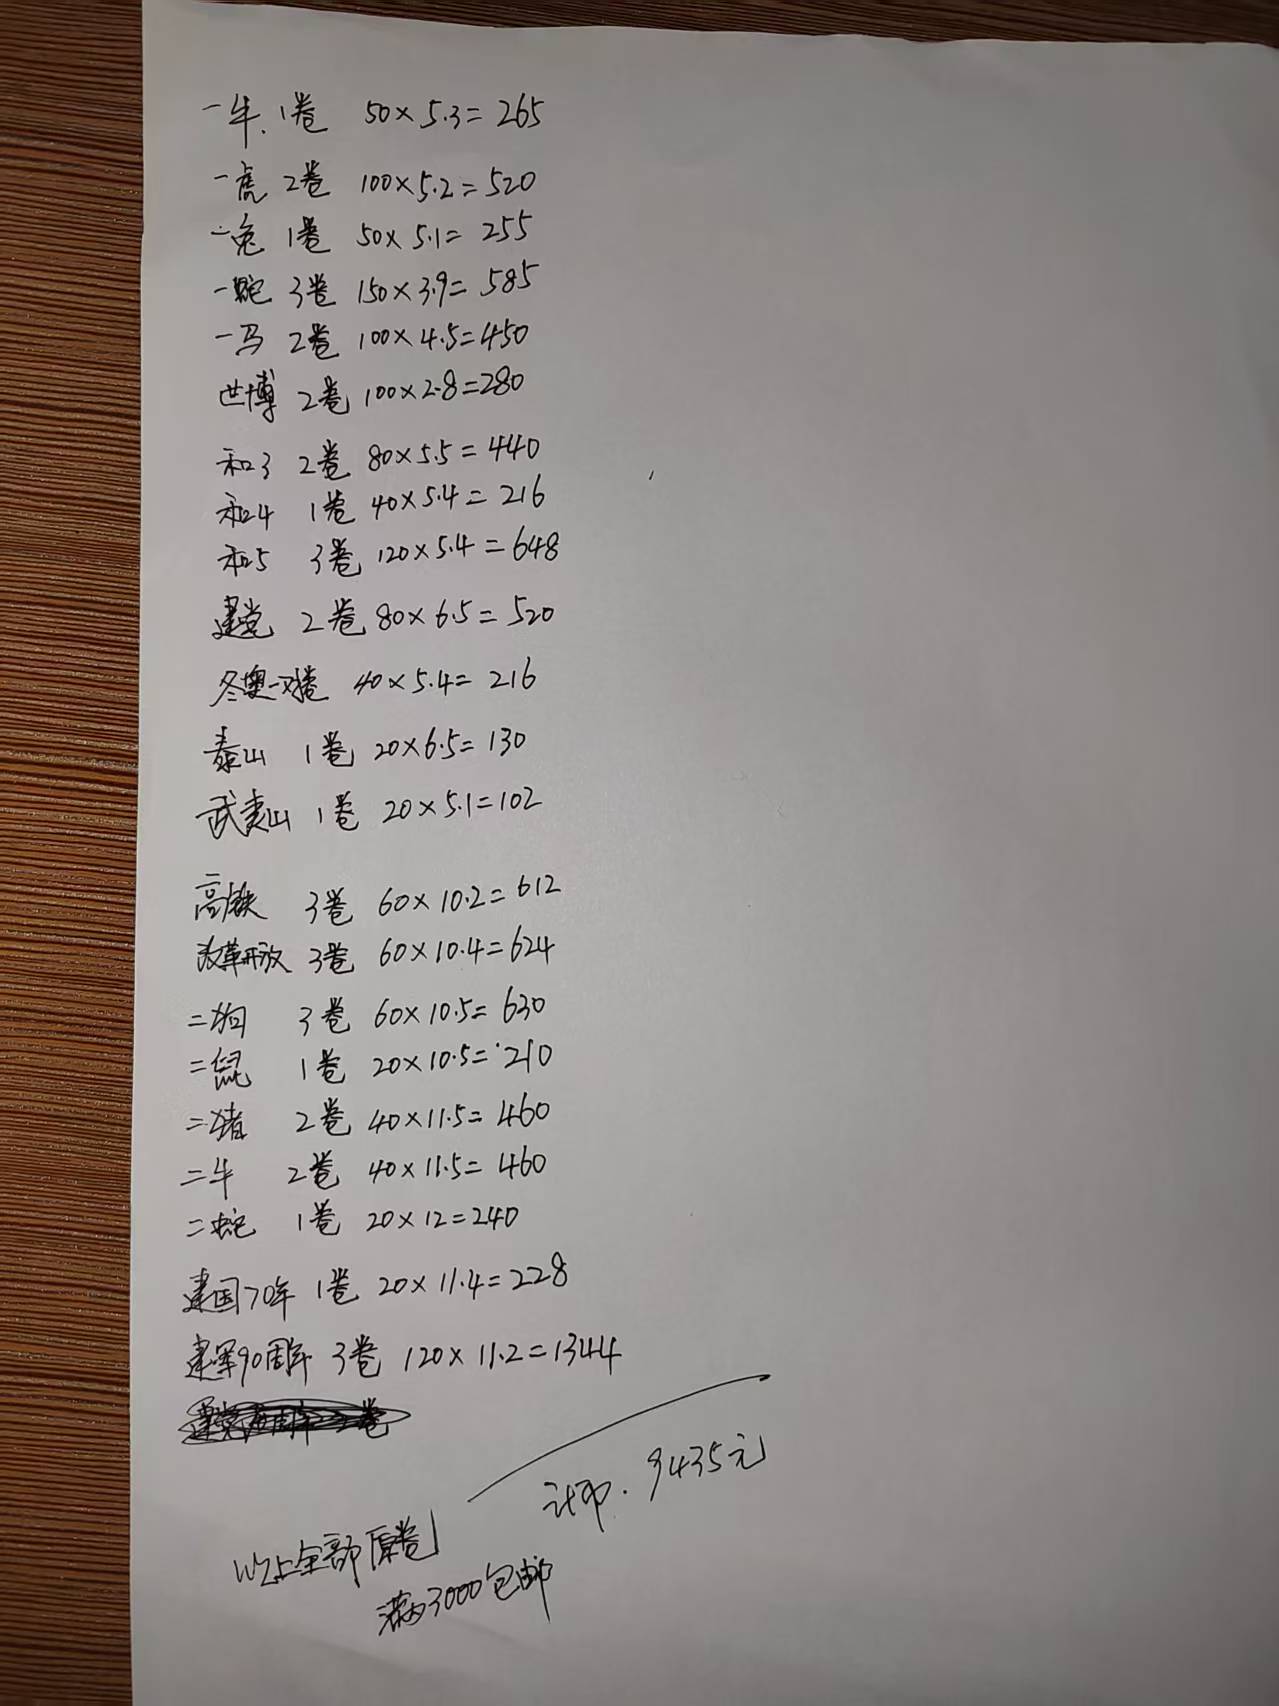 一牛.1卷 50×5.3=265
一虎 2卷 100×5.2=520
一兔 1卷 50×5.1=255
一蛇 3卷 150×3.9=585
一马 2卷 100×4.5=450
世博 2卷 100×2.8=280
和3 2卷 80×5.5=440
和4 1卷 40×5.4=216
和5 3卷 120×5.4=648
建党 2卷 80×6.5=520
冬奥一对卷 40×5.4=216
泰山 1卷 20×6.5=130
武夷山 1卷 20×5.1=102
高铁 3卷 60×10.2=612
改革开放 3卷 60×10.4=624
二狗 3卷 60×10.5=630
二鼠 1卷 20×10.5=210
二猪 2卷 40×11.5=460
二牛 2卷 40×11.5=460
二蛇 1卷 20×12=240
建国70年 1卷 20×11.4=228
建军90周年 3卷 120×11.2=1344
计币.9435元
以上全部原卷
满3000包邮